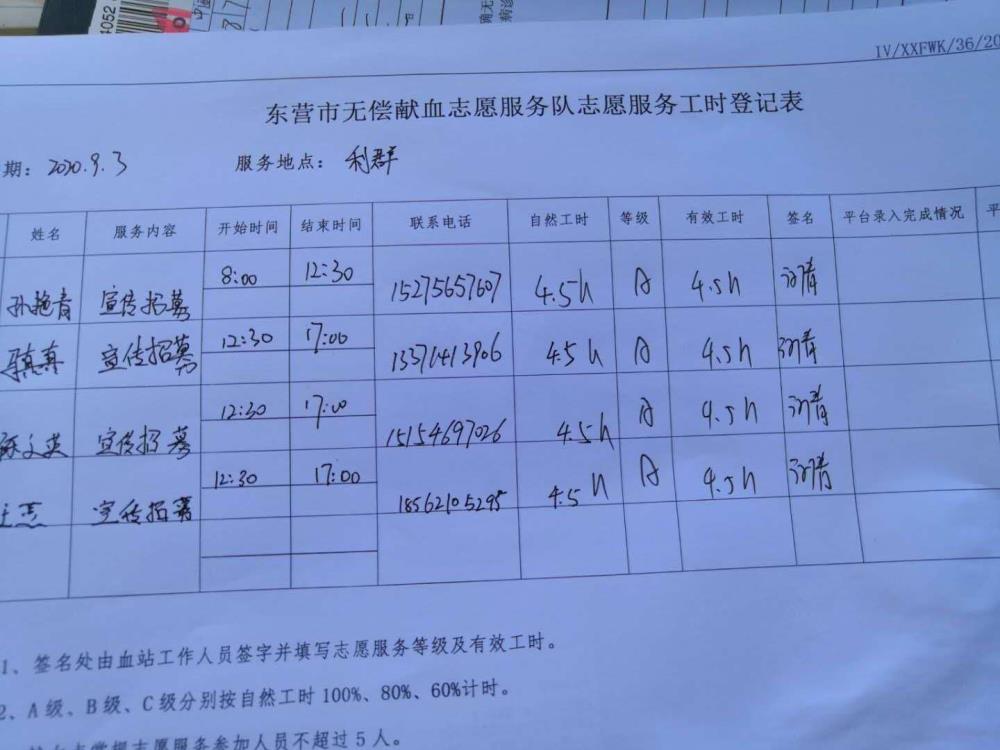 4052
IV/XXFWK/36/20
东营市无偿献血志愿服务队志愿服务工时登记表
期： 2020.9.3 服务地点： 利群
姓名 服务内容 开始时间 结束时间 联系电话 自然工时 等级 有效工时 签名 平台录入完成情况 平
孙艳青 宣传招募 8:00 12:30 15275657607 4.5h A 4.5h
真真 宣传招募 12:30 17:00 13371413906 4.5h A 4.5h
文英 宣传招募 12:30 17:00 15154697026 4.5h A 4.5h
宣传招募 12:30 17:00 18562105295 4.5h A 4.5h
1、签名处由血站工作人员签字并填写志愿服务等级及有效工时。
2、A级、B级、C级分别按自然工时100%、80%、60%计时。
志愿服务参加人员不超过5人。